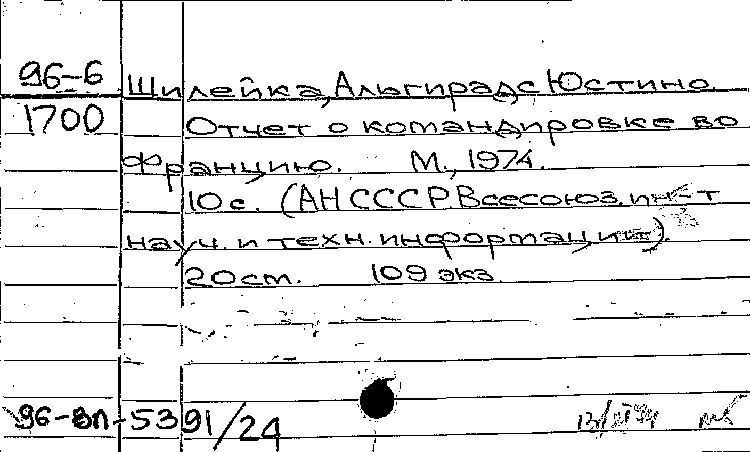 96-6 Шилейка, Альгирадс Юстино.
1700 Отчет о командировке во
Францию. М., 1974.
10 с. (АН СССР. Всесоюз. ин-т
науч. и техн. информации).
20 см. 109 экз.
96-вл-5391/24